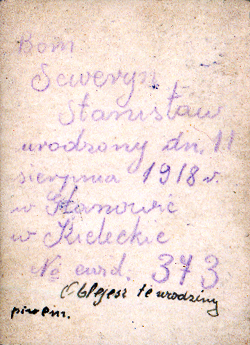 Bom
Seweryn
Stanisław
urodzony dn. 11
sierpnia 1918 r.
w
w Kieleckie
№ ewid. 373
Oblejesz te urodziny
piwem.